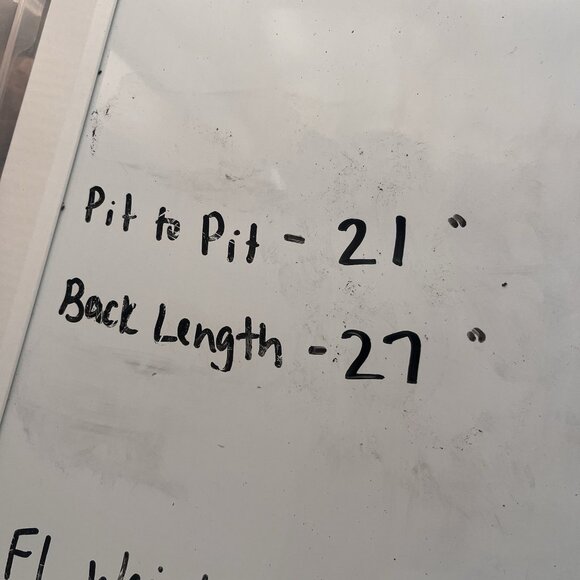 Pit to Pit - 21 "
Back Length - 27 "
Fl